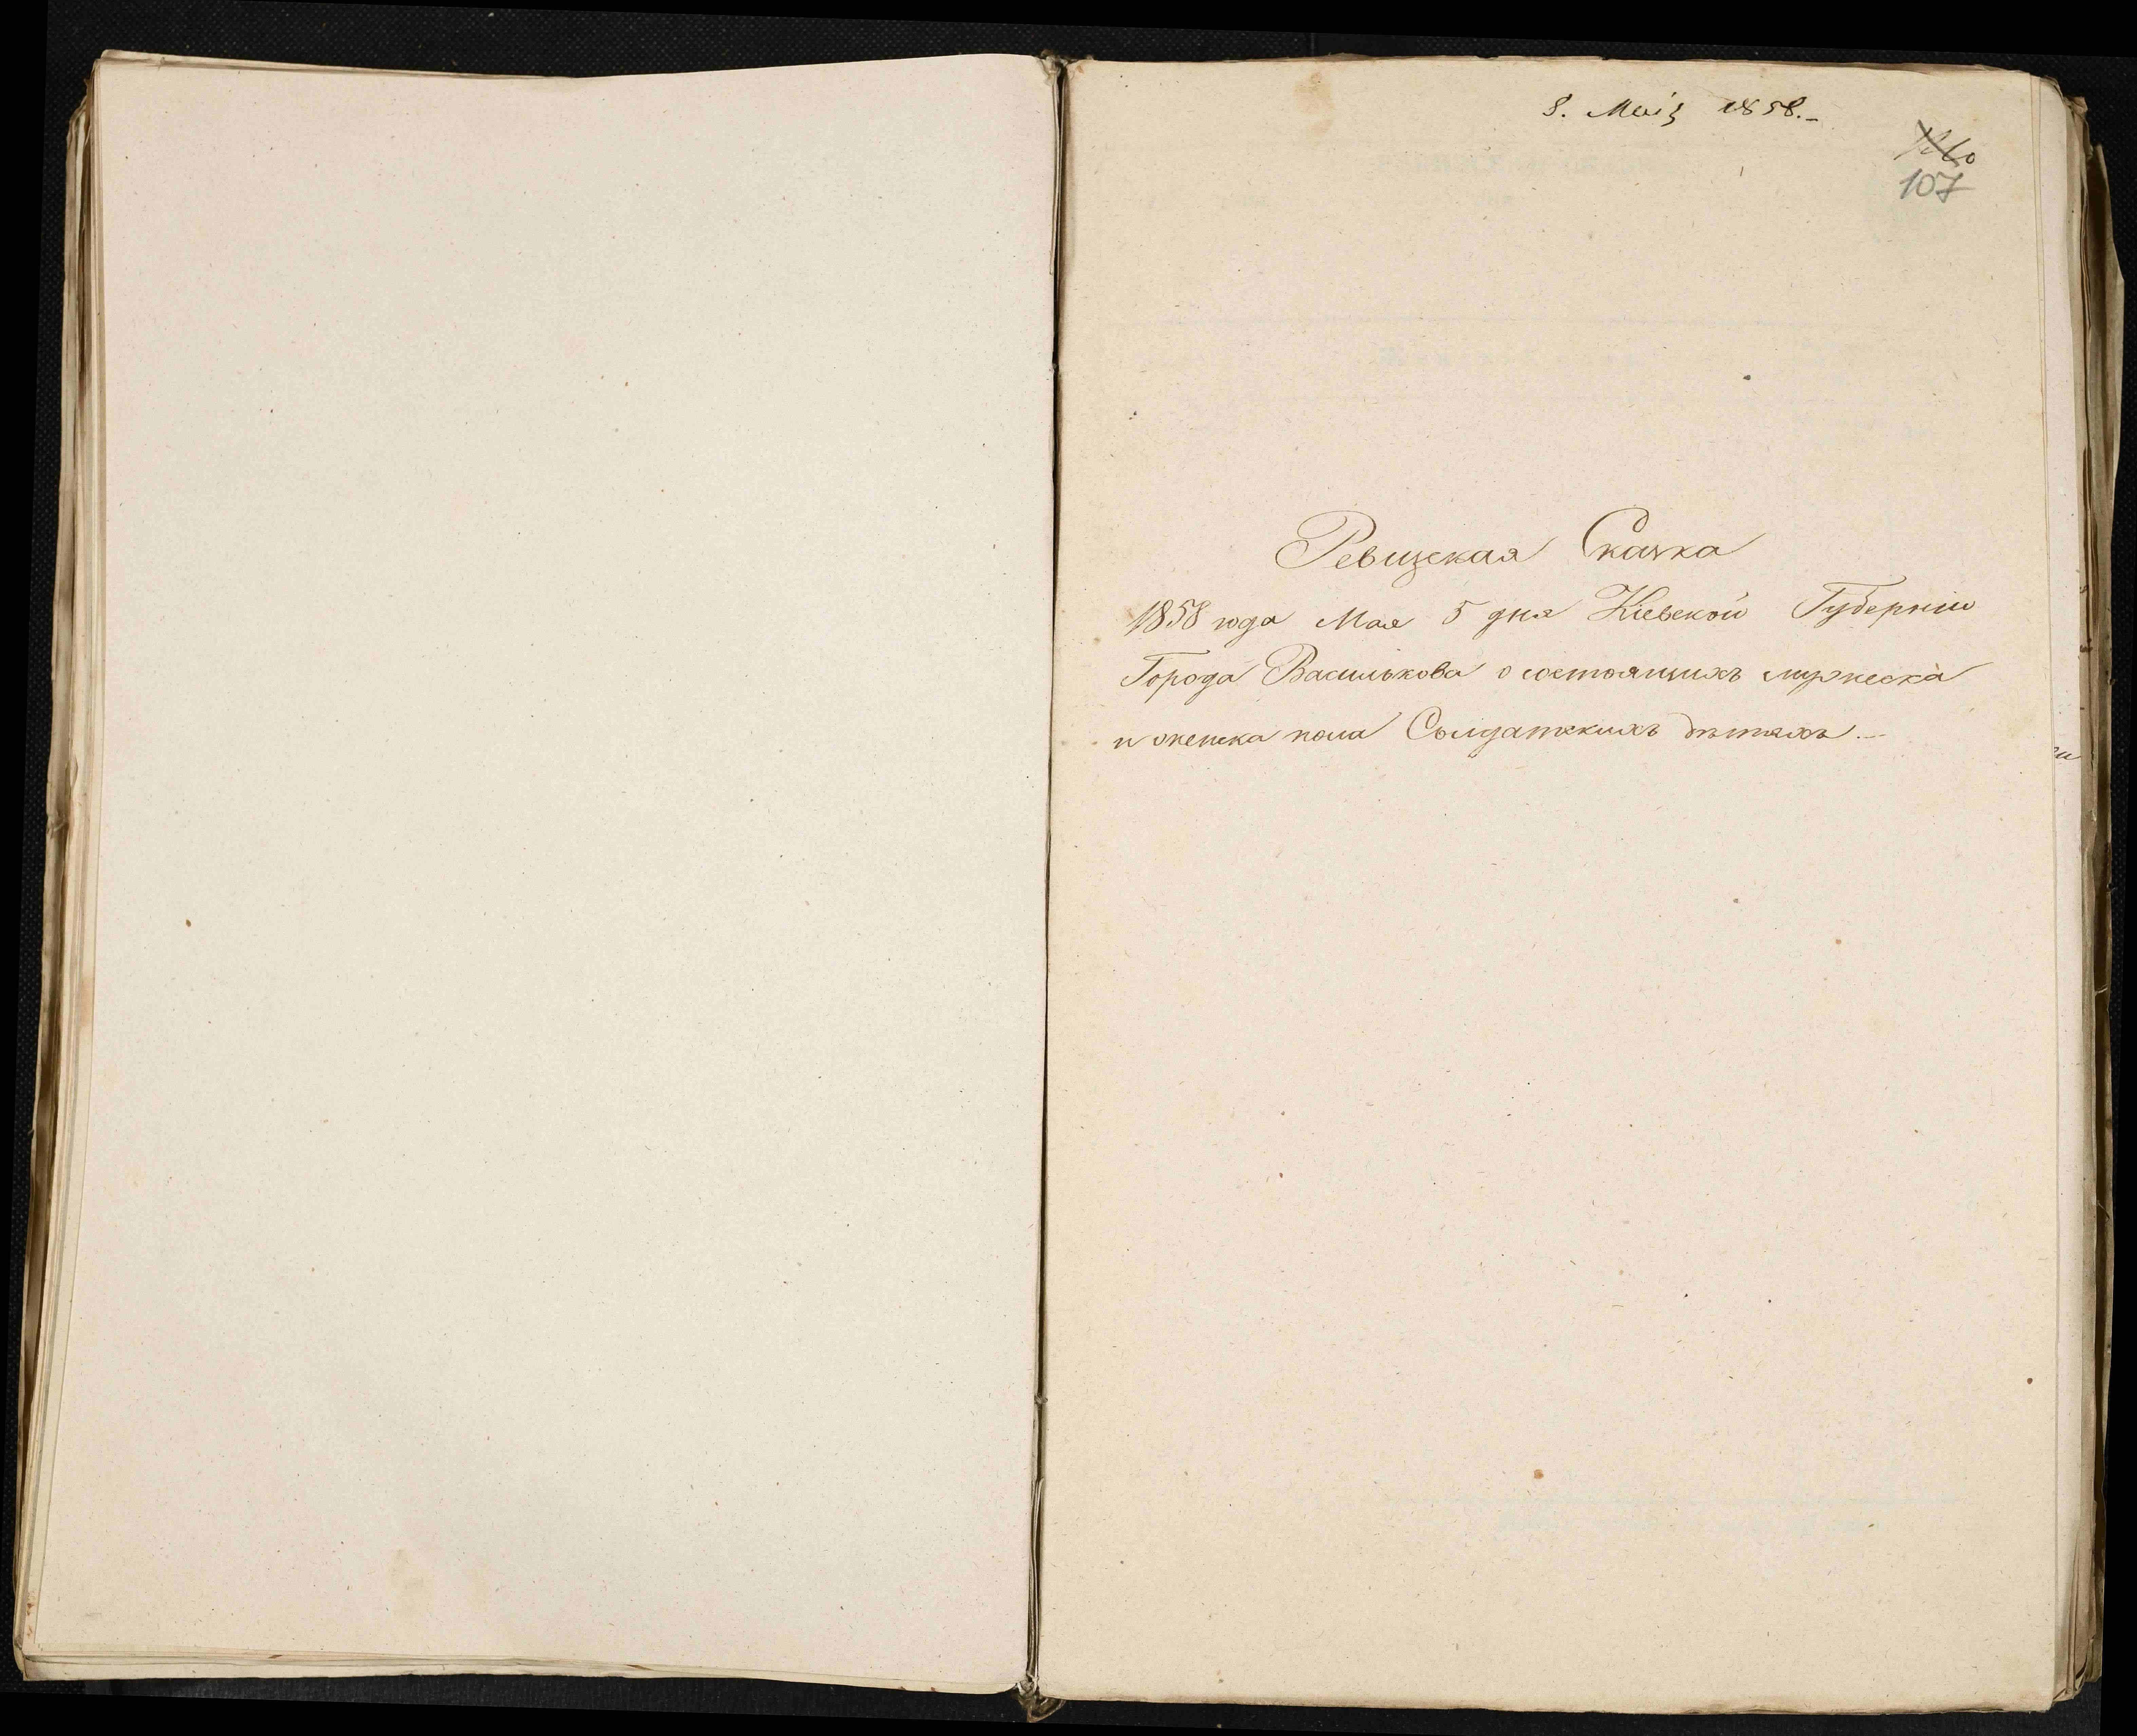 8. Маія 1858.-
107
Ревизская Сказка
1858 года Мая 5 дня Кіевской Губерніи
Города Василькова о состоящихъ мужеска
и женска пола Солдатскихъ дѣтяхъ.-